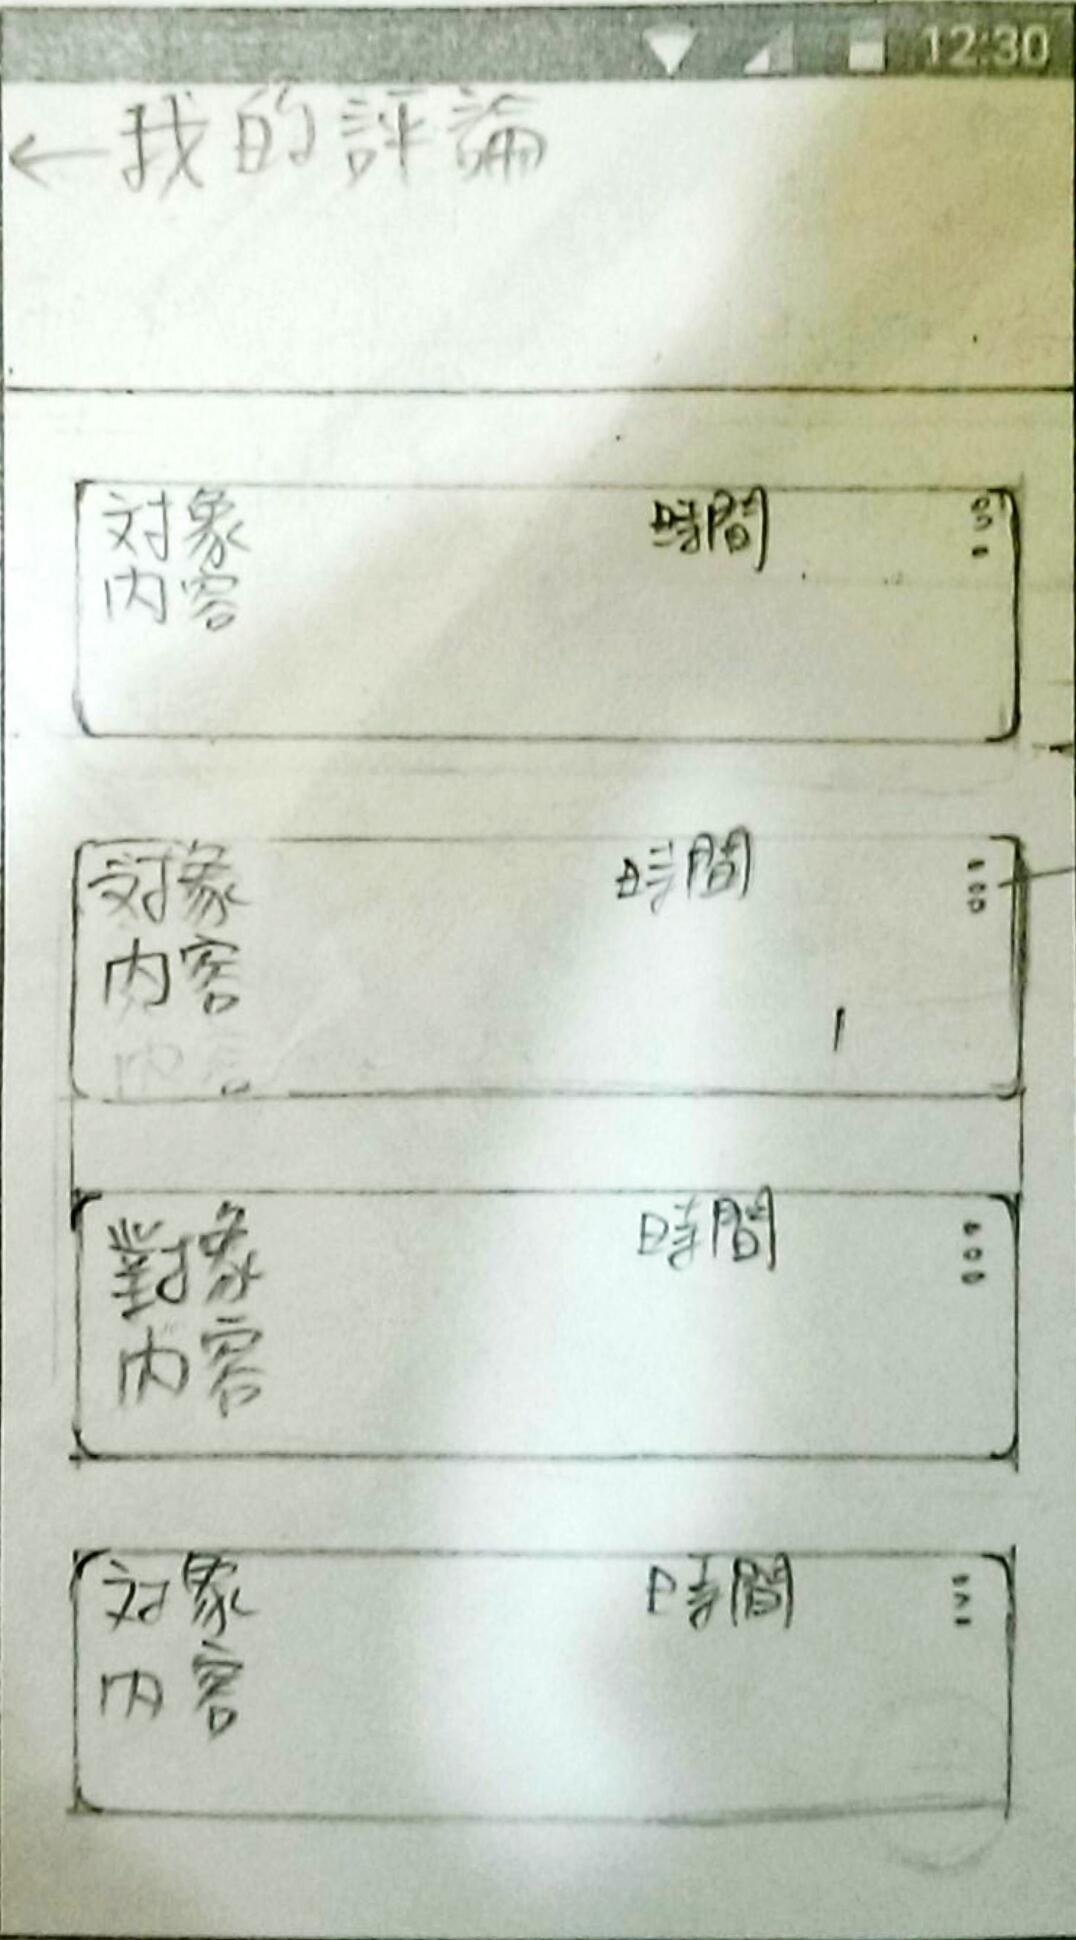 12:30
←我的評論
対象 時間
内容
対象 時間
内容
内容
對象 時間
内容
対象 時間
内容